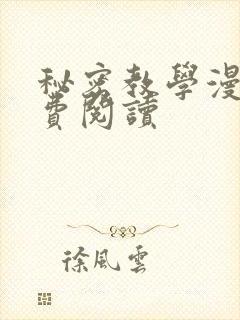 秘密教學漫
費閱讀
徐風雲